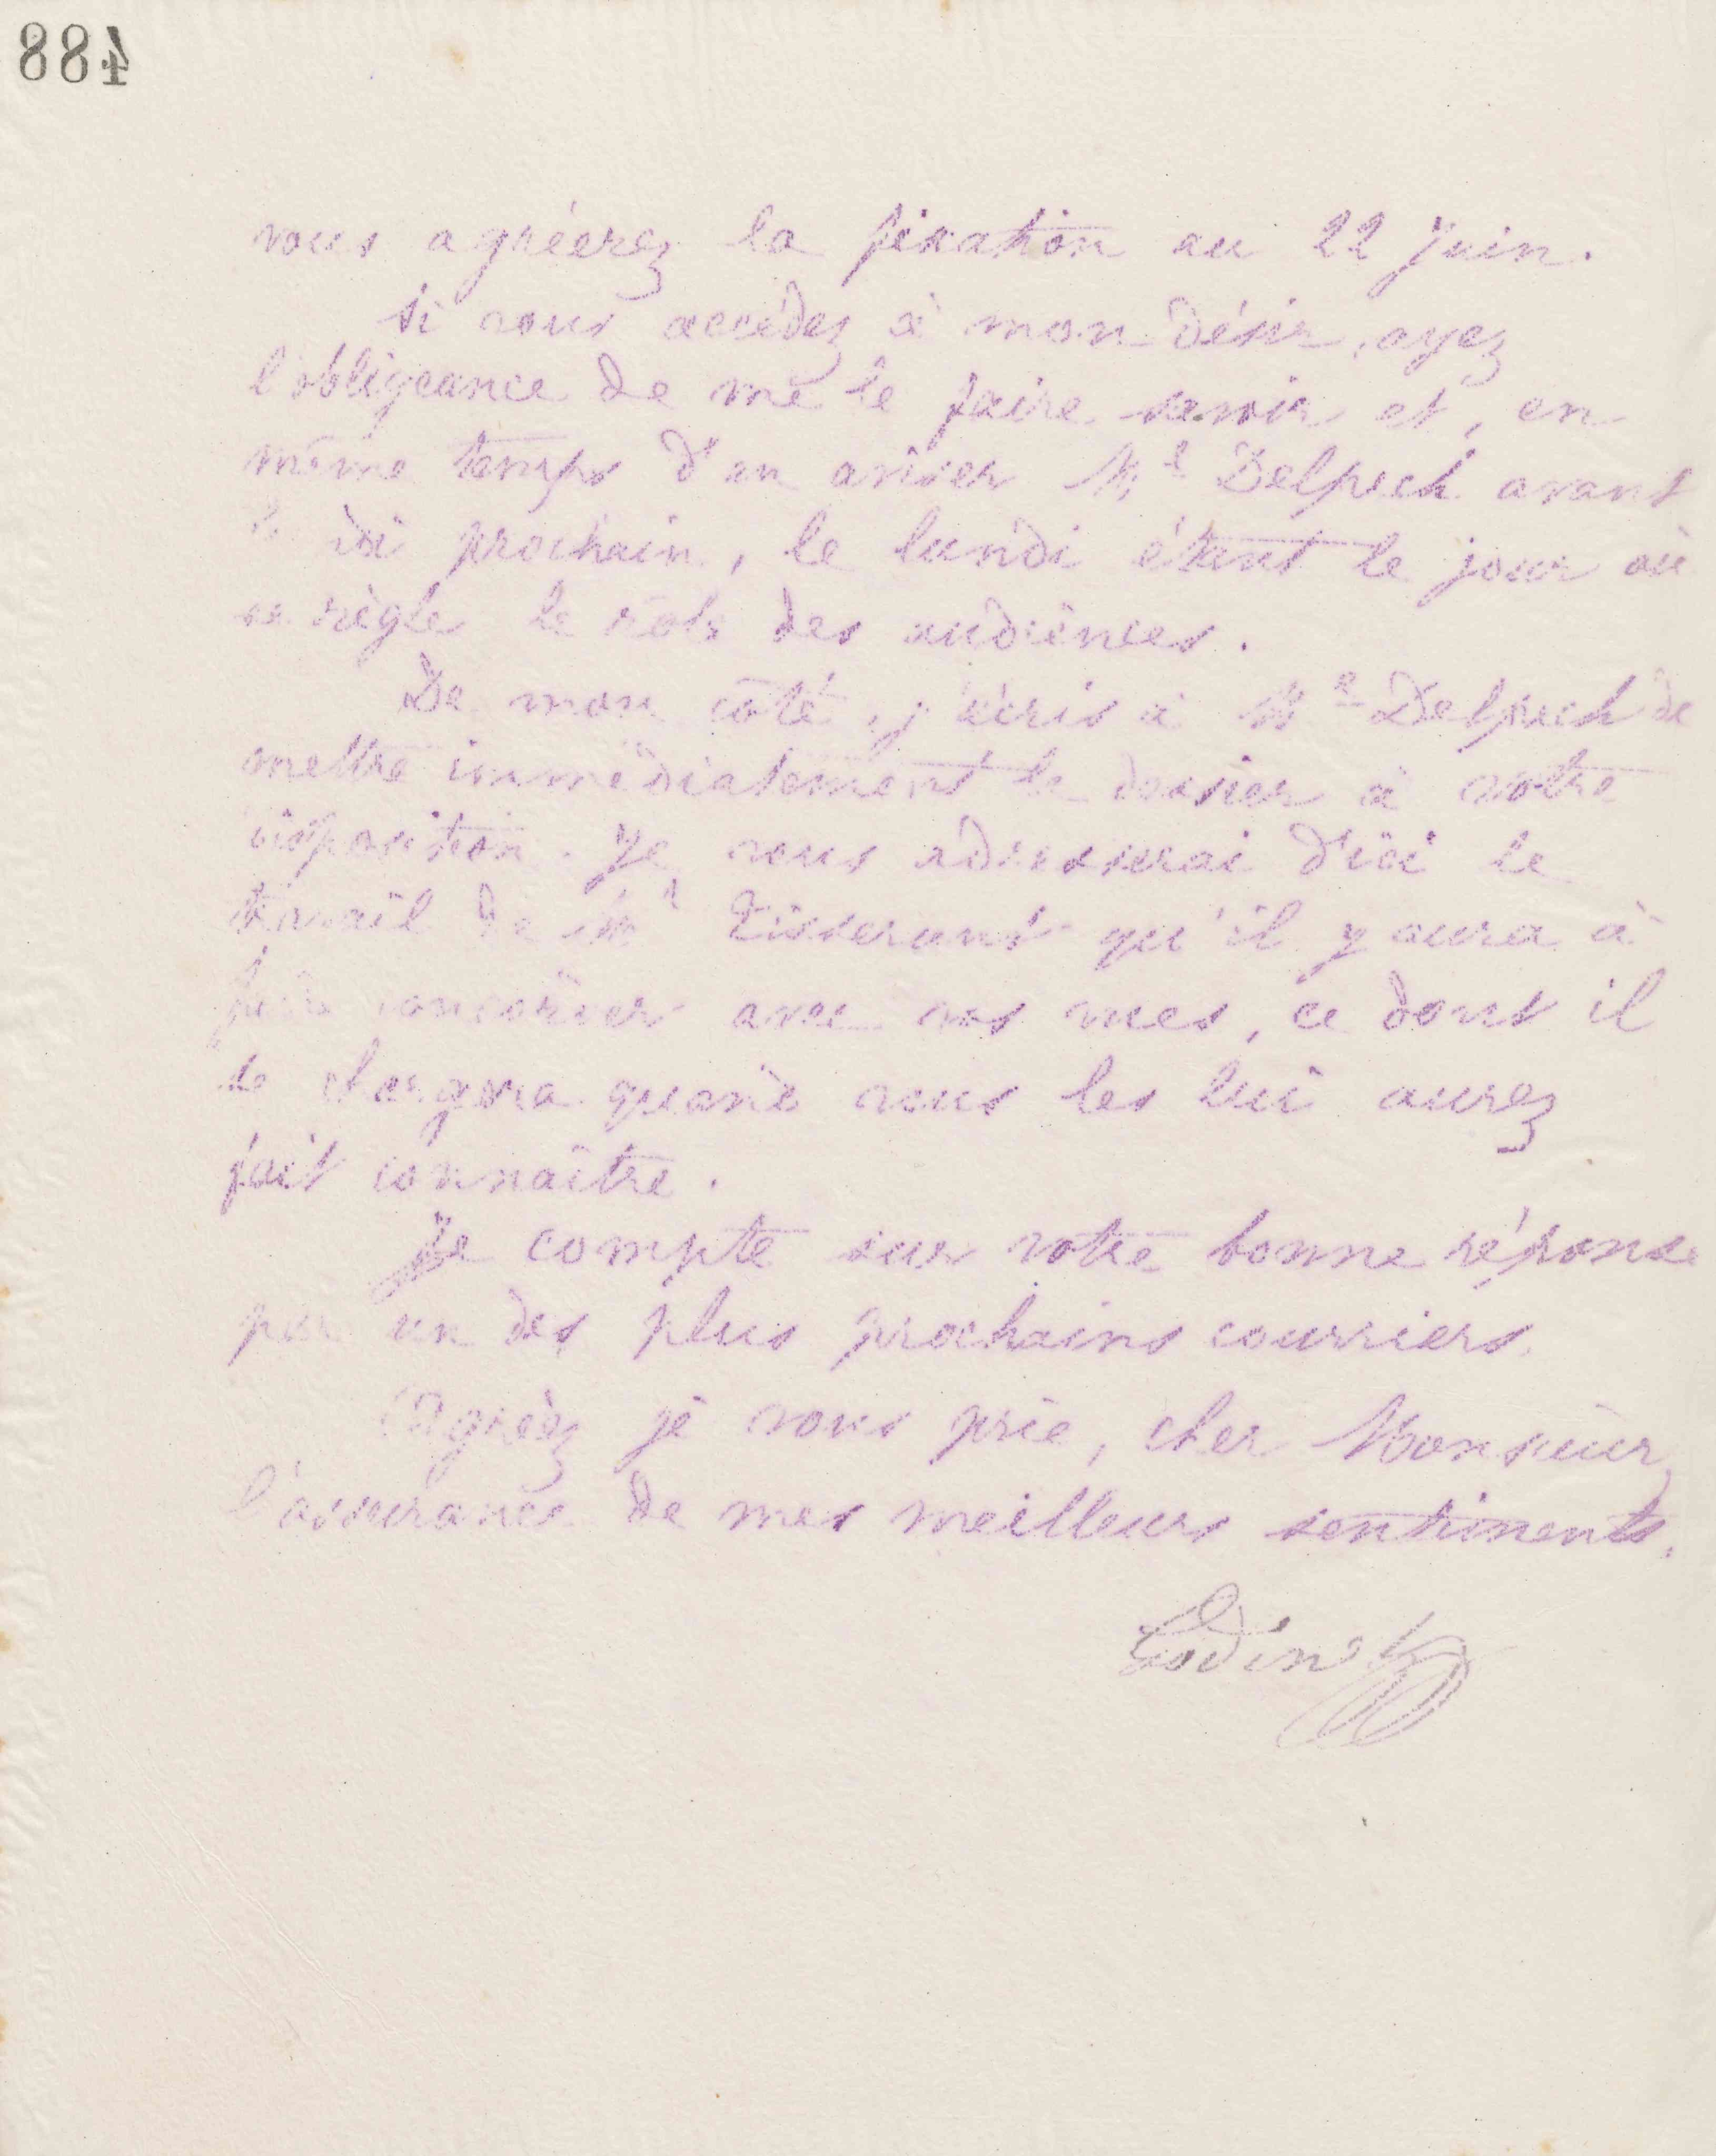 488
vous agréerez la fixation au 22 juin.
Si vous accédez à mon désir, ayez
l'obligeance de me le faire savoir et, en
même temps d'en aviser Me Delpech avant
di prochain, le lundi étant le jour où
se règle le rôle des audiences.
De mon côté, j'écris à Me Delpech de
mettre immédiatement le dossier à votre
disposition. Je vous adresserai d'ici le
travail de Mr Tisserant qu'il y aura à
faire concorder avec vos vues, ce dont il
se chargera quand vous les lui aurez
fait connaître.
Je compte sur votre bonne réponse
par un des plus prochains courriers.
Agréez je vous prie, cher Monsieur,
l'assurance de mes meilleurs sentiments.
Godin